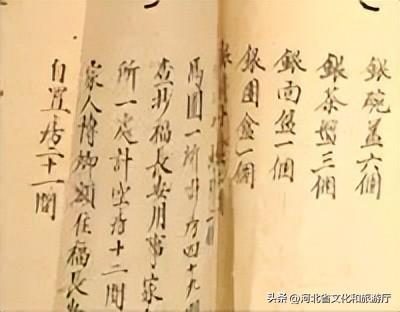 銀碗蓋六個
銀茶盤三個
銀面盆一個
銀圓盒一個
馬圈一所計房四十九間
查抄福長安用事家
所一處計坐房十二間
家人博卿額住福長安
自置房二十一間
头条 @河北省文化和旅游厅